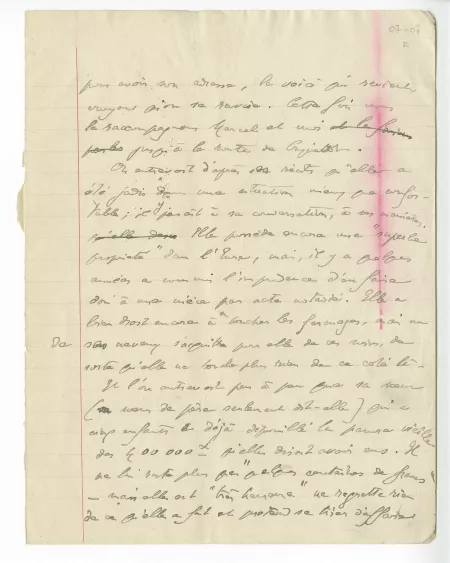 07-09
pour avoir son adresse, la voici qui revient
croyant qu'on se ravise. Cette fois nous
la raccompagnons Marcel et moi
jusqu'à la route de
On entrevoit d'après ses récits qu'elle a
été jadis dans une situation mieux que confor-
table ; il paraît à sa conversation, à ses manières,
qu'elle Elle possède encore une "superbe
propriété" dans l'Eure, mais, il y a quelques
années a commis l'imprudence d'en faire
don à une nièce par acte notarié. Elle a
bien droit encore à en toucher les fermages, mais un
De neveu s'acquitte pour elle de ces soins, de
sorte qu'elle ne touche plus rien de ce côté là -
Et l'on entrevoit peu à peu que sa sœur
( sœur de père seulement dit-elle) qui a
cinq enfants a déjà dépouillé la pauvre vieille
des 400 000 f qu'elle disait avoir eus. Il
ne lui reste plus que quelques centaines de francs
- mais elle est "très heureuse" ne regrette rien
de ce qu'elle a fait et prétend se tirer d'affaire